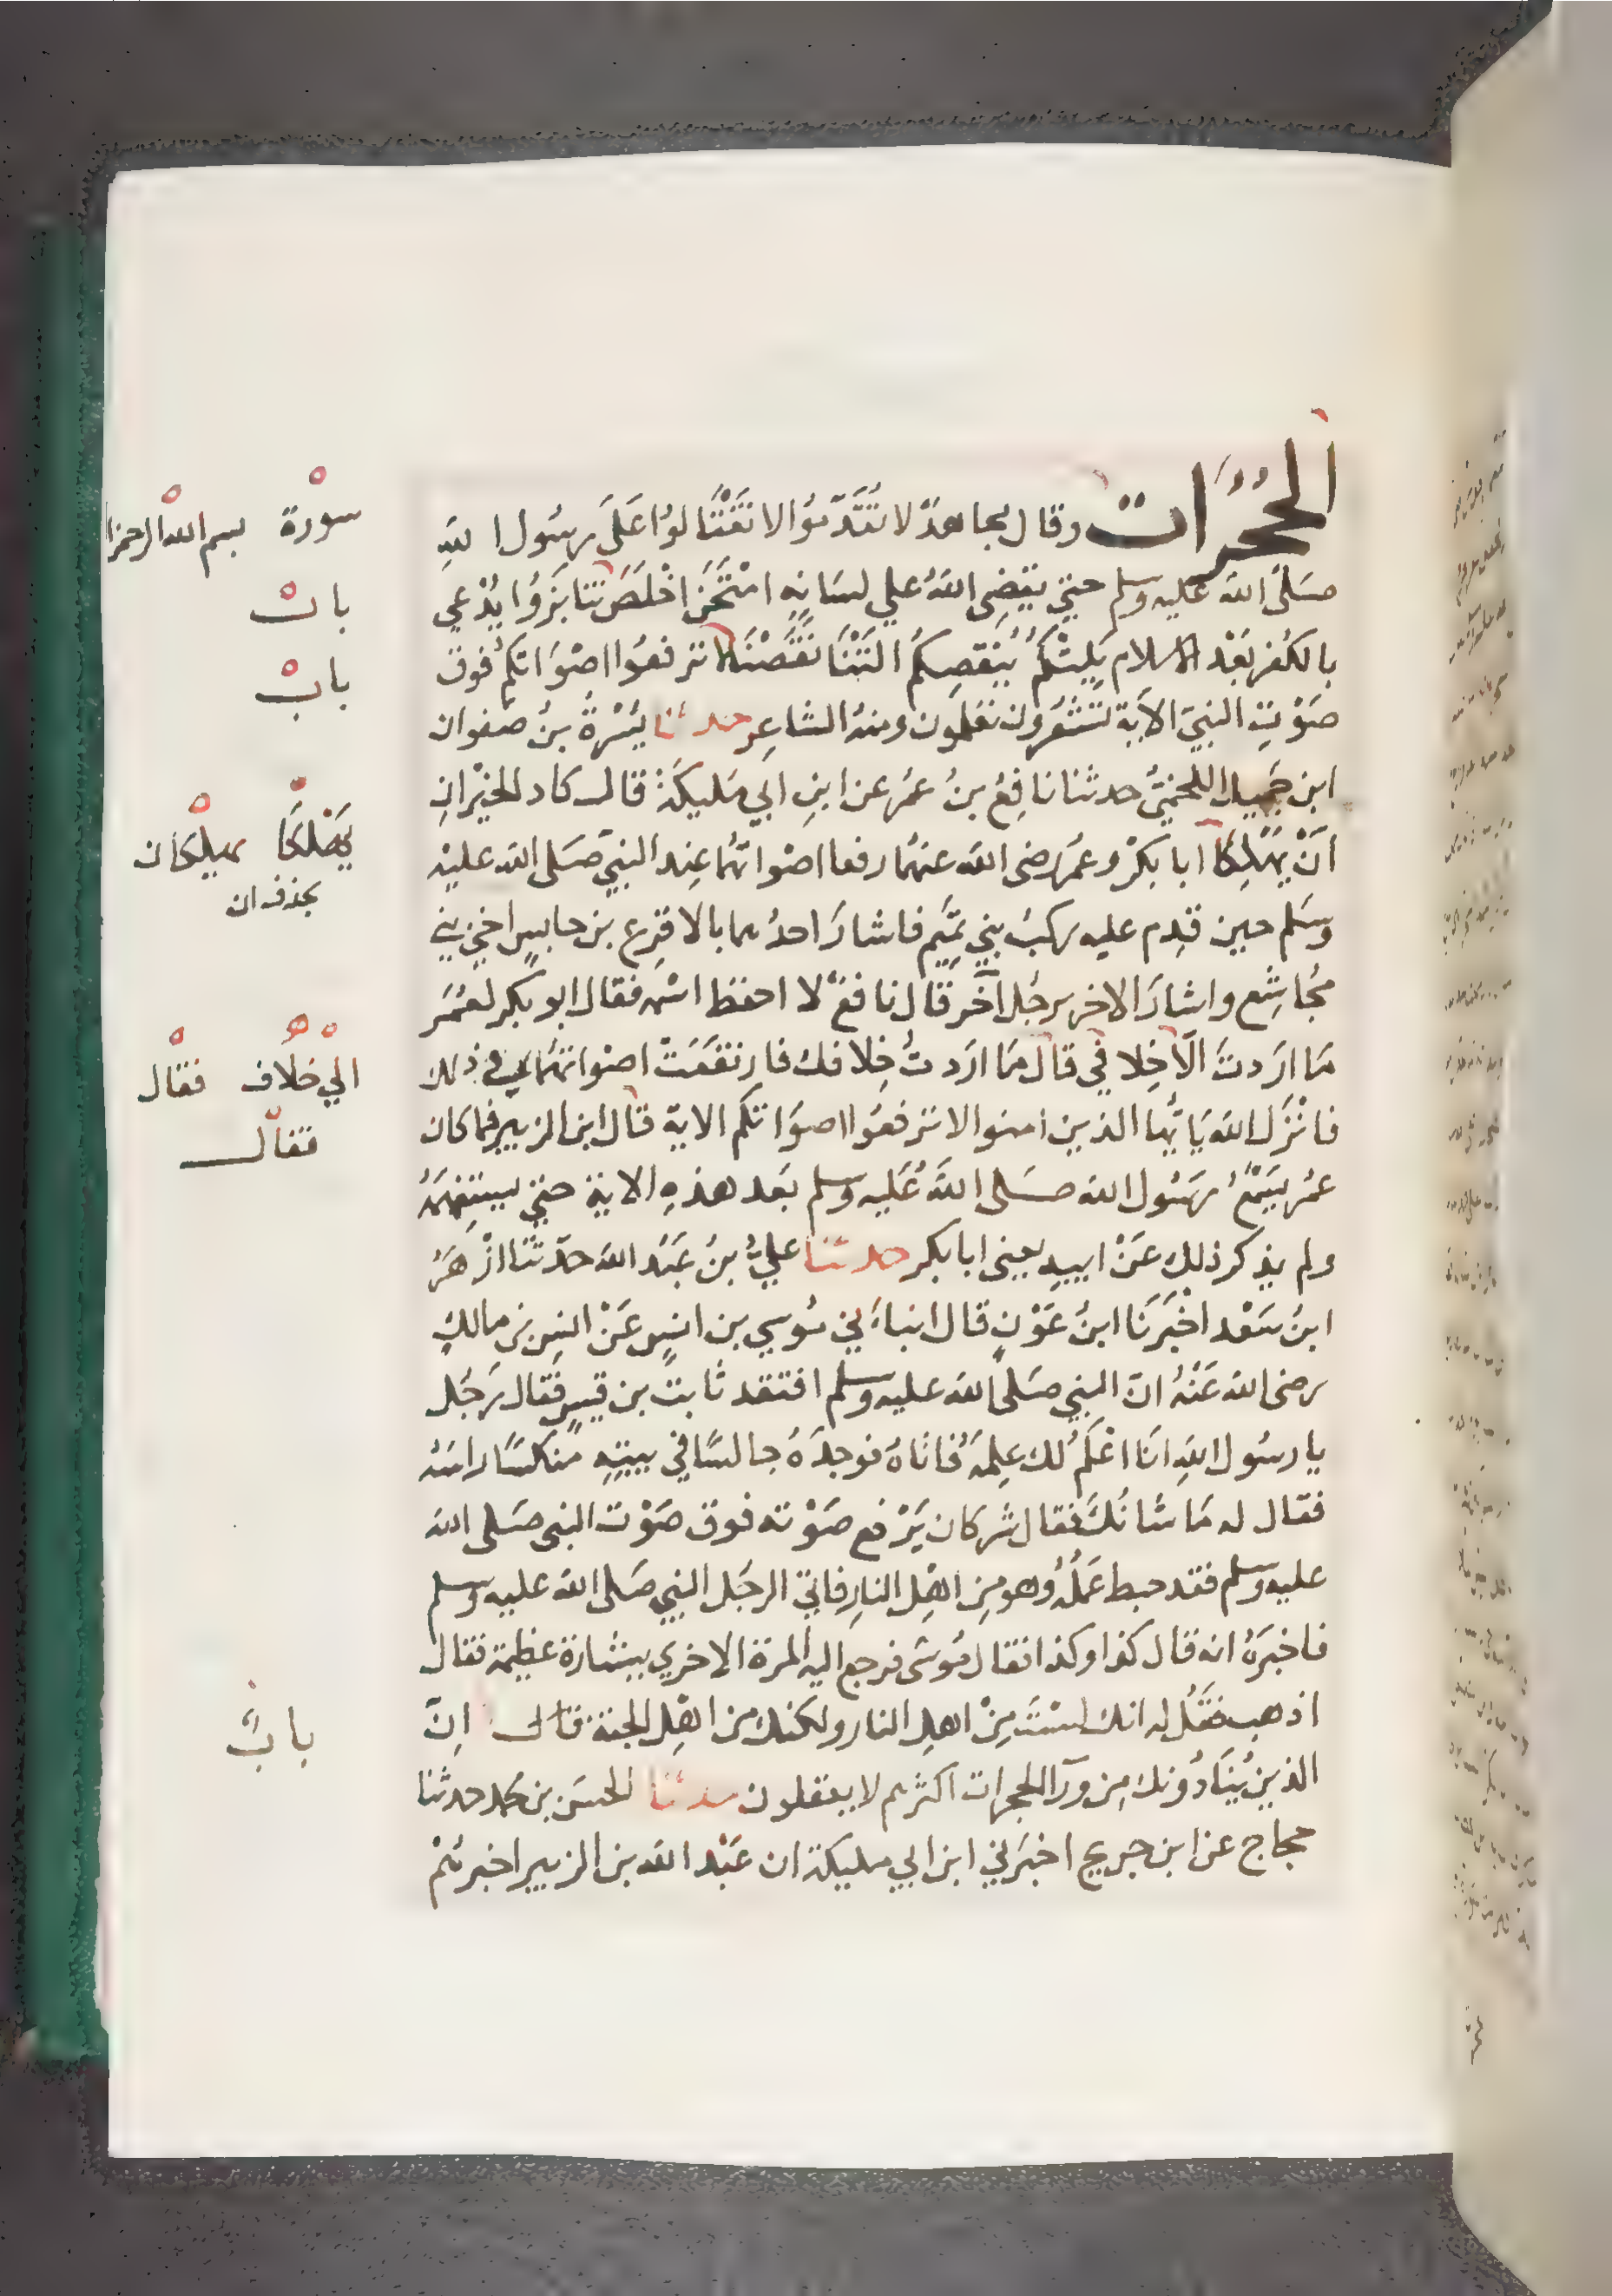 الحُجُرَات وقال مجاهدٌ لا تُقَدِّموُا لا تَفْتَالوُا عَلَى رسُول اللهِ
صَلى الله عليه وسلم حتي يقضِى اللهُ علي لسَانِهِ امْتَحَنَ اخْلَصَ تنابزوُا يُدْعي
بالكُفر بَعْد الاسلام يَلِتْكُمُ يَنْقصِكُم التْنَا نَقَصْنَا لا ترفعُوا اصْوَاتكم فوق
صَوْتِ النبي الآية تَشْعُرُون تعْلمون ومنه الشاعِر حدثنا يُسْرةُ بنُ صفوان
ابن جَميل اللخميُّ حدثنا نافِعُ بنُ عُمَر عن ابنِ ابي مليكَةَ قال كاد الخيْرانِ
اَنْ يَهْلِكا ابا بكرٌ وعُمر رضى الله عنهُما رفعا اصْواتهُما عِند النبيّ صَلى الله عليْه
وسَلم حين قدِم عليه ركبُ بنِي تَميِم فاشارَ احدُهما بالاقرِع بن حابسٍ اخي بني
مُجَاشِع واشارَ الاخر برجُلٍ آخر قال نافعٌ لا احفظ اسْمه فقال ابو بكر لعُمَر
مَا ارَدتَ الّا خِلافي قال مَا ارَدتُ خِلافك فارتفعَتْ اصْواتهُما في ذلك
فانْزَل الله يَايّها الذين امنوا لا ترفعُوا اصوَاتكم الاية قال ابن الزبير فما كان
عُمر يُسْمِعُ رسُول الله صَلى اللهُ عَليه وسلم بَعد هذهِ الاية حتي يستفهِمَهُ
ولم يذكر ذلك عَنْ ابيهِ يعنى ابا بكر حدثنا عليُّ بنُ عَبْد الله حدّثنا ازْهَرُ
ابنُ سَعْد اخْبَرَنا ابنُ عَوْنٍ قال انبأني مُوسي بن انسٍ عَنْ انس بن مالكٍ
رضى الله عَنْهُ ان النبي صَلى الله عليه وسلم افتقد ثابت بن قيسٍ فقال رَجُل
يا رسُول اللهِ انَا اعْلَمُ لك عِلمَهُ فاتاهُ فوجدَهُ جالسًا في بيتهِ منكسًا راسَهُ
فقال له مَا شانُكَ فقال شر كان يَرْفع صَوْته فوق صَوْت النبى صَلى الله
عليه وسلم فقد حبط عَملُهُ وهو مِن اهْل النارِ فاتي الرجُل النبي صَلى الله عليه وسلم
فاخبَرَهُ انه قال كذا وكذا فقال مُوسَى فرجع اليه المرة الاخري ببشارة عظيمة فقال
اذهب فقُل له انك لسْتَ مِنْ اهل النار ولكنك من اهْل الجنة قال انّ
الذين يُنَادُونك مِن ورآ الحجرات اكثرهم لا يعقلون حدثنا الحسَن بن محمد حدثنا
حجاج عن ابن جريج اخبَرني ابن ابي مليكة ان عَبْد الله بن الزبير اخبرهُمْ
سورة بسم الله الرحمن
باب
باب
يَهْلكَا يهلكان
بحذف ان
الي خلاف فقال
فقال
بابٌ